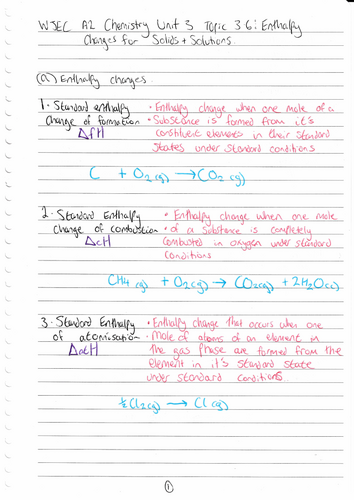 WJEC A2 Chemistry Unit 3 Topic 3.6: Enthalpy
Changes for Solids + Solutions.
(a) Enthalpy changes.
1. Standard enthalpy change of formation ΔfH
• Enthalpy change when one mole of a
• Substance is formed from it's
constituent elements in their standard
states under standard conditions
C + O2(g) → CO2(g)
2. Standard Enthalpy Change of combustion ΔcH
• Enthalpy change when one mole
• of a substance is completely
combusted in oxygen under standard
conditions
CH4(g) + O2(g) → CO2(g) + 2H2O(l)
3. Standard Enthalpy of atomisation ΔatH
• Enthalpy change that occurs when one
• Mole of atoms of an element in
the gas phase are formed from the
element in it's standard state
under standard conditions.
½Cl2(g) → Cl(g)
1